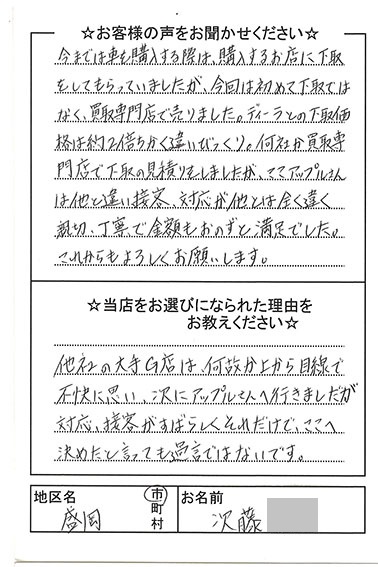 ☆お客様の声をお聞かせください☆
今までは車を購入する際は、購入するお店に下取
をしてもらっていましたが、今回は初めて下取では
なく、買取専門店で売りました。ディーラとの下取価
格は約2倍ちかく違いびっくり。何社か買取専
門店で下取の見積りをしましたが、ここアップルさん
は他と違い接客、対応が他とは全く違く
親切、丁寧で金額もおのずと満足でした。
これからもよろしくお願いします。
☆当店をお選びになられた理由を
お教えください☆
他社の大手G店は、何故か上から目線で
不快に思い、次にアップルさんへ行きましたが
対応、接客がすばらしくそれだけで、ここへ
決めたと言っても過言ではないです。
地区名
盛岡
市
町
村
お名前
次藤